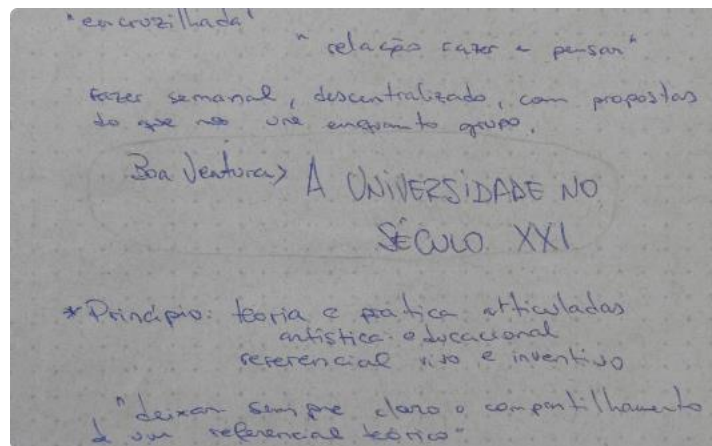 "encruzilhada"
"relação fazer e pensar"
fazer semanal, descentralizado, com propostas
do que nos une enquanto grupo.
Boa Ventura> A UNIVERSIDADE NO
SÉCULO XXI
*Princípio: teoria e prática articuladas
artística educacional
referencial vivo e inventivo
"deixar sempre claro o compartilhamento
de um referencial teórico"